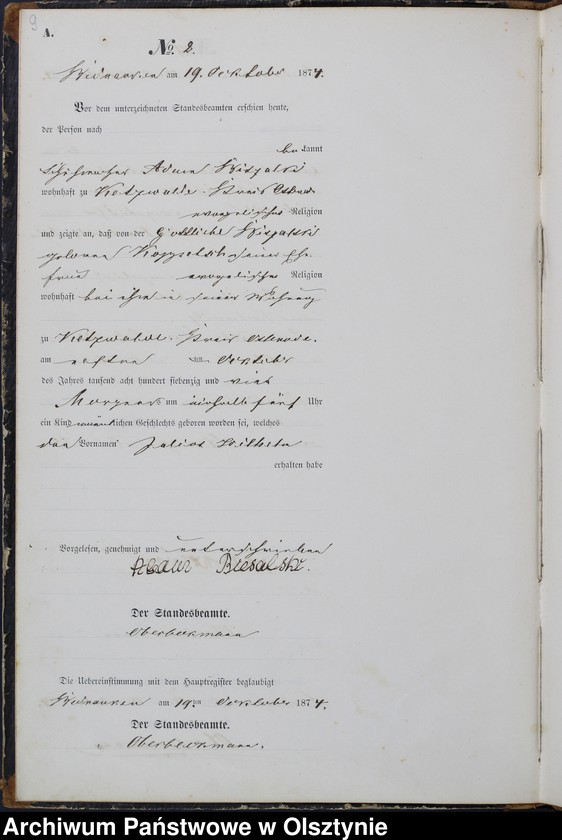 9
A.
No. 2.
am 19. October 1874.
Vor dem unterzeichneten Standesbeamten erschien heute,
der Person nach
bekannt
Adam
wohnhaft zu Kreis
evangelischer Religion
und zeigte an, daß von der Gottliebe
geborene seiner Ehe-
frau evangelischer Religion
wohnhaft bei ihm in seiner Wohnung
zu Kreis Osterode.
am October
des Jahres tausend acht hundert siebenzig und vier
Morgens um fünf Uhr
ein Kind männlichen Geschlechts geboren worden sei, welches
den Vornamen Julius Wilhelm
erhalten habe
Vorgelesen, genehmigt und unterschrieben
Adam Biesalski.
Der Standesbeamte.
Oberbeckmann
Die Uebereinstimmung mit dem Hauptregister beglaubigt
am 19ten October 1874.
Der Standesbeamte.
Oberbeckmann.
Archiwum Państwowe w Olsztynie